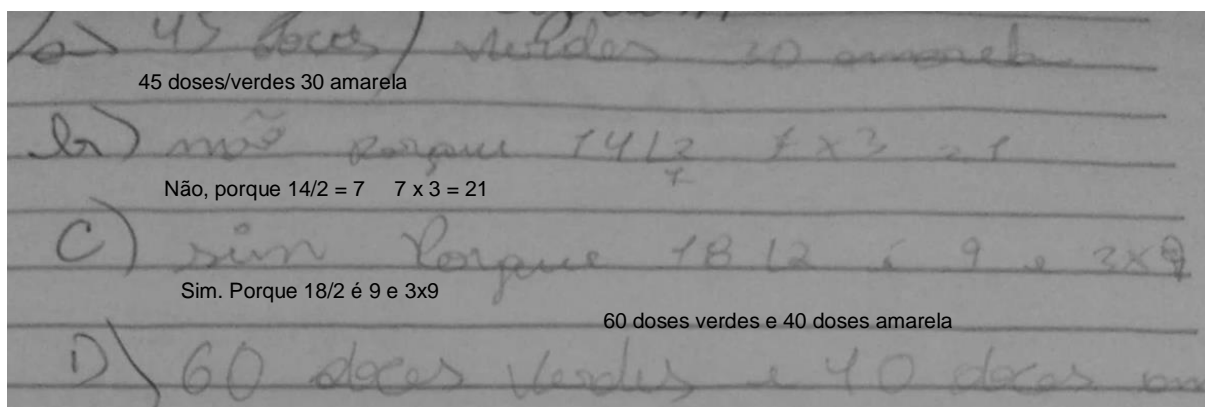 a) 45 doces/ verdes 30 amarela
45 doses/verdes 30 amarela
b) não porque 14 2 7 x 3 21
7
Não, porque 14/2 = 7 7 x 3 = 21
C) sim Porque 18 2 é 9 e 3x9
Sim. Porque 18/2 é 9 e 3x9
60 doses verdes e 40 doses amarela
D) 60 doces verdes e 40 doces am